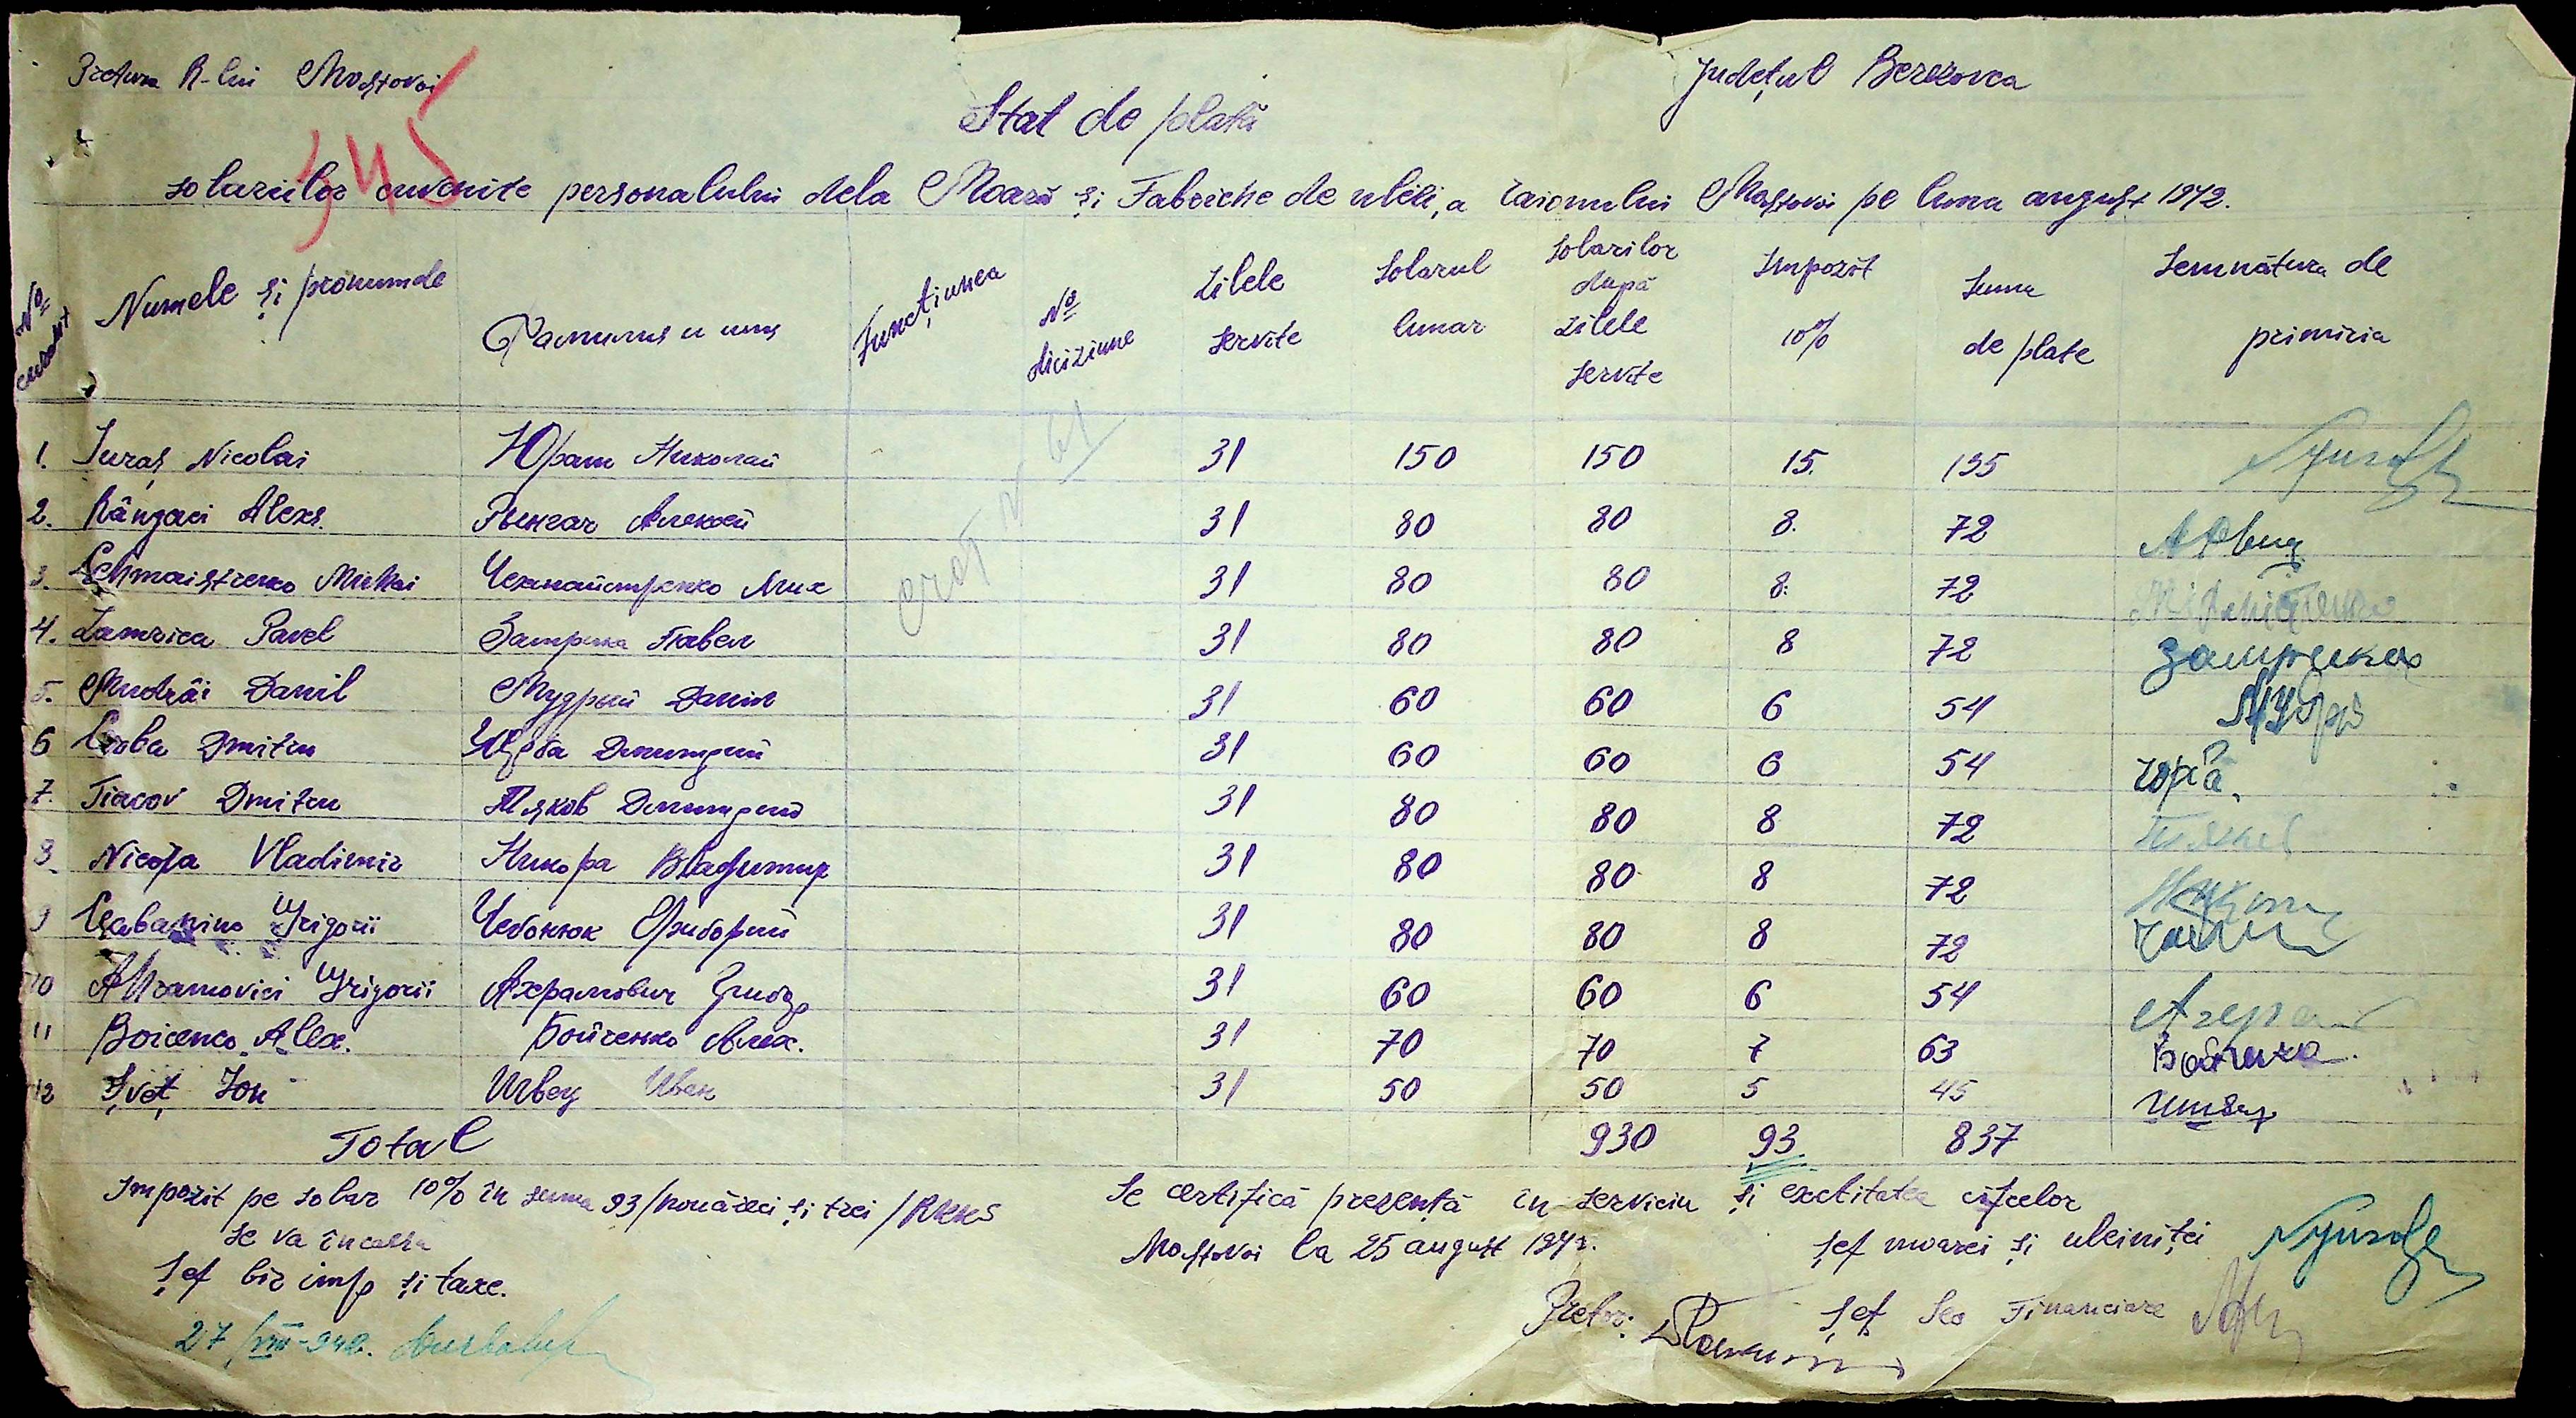 Pretura R-lui Mostovoi
Județul Berezovca
345
Stat de plată
solariilor cuvenite personalului dela Moară și Fabriche de ulèi, a raionului Mostovoi pe luna august 1942.
№ curent
Numele și pronumde
Фамилия и имя
Funcțiunea
№ diciziune
Zilele servite
Solarul lunar
Solarilor după zilele servite
Impozit 10%
Suma de plate
Semnătura de primiria
1. Iuraș Nicolai Юраш Николай 31 150 150 15. 135
2. Rângaci Alexs. Рынгач Алексей 31 80 80 8. 72
3. Cehmaistrenco Mihai Чехмайстренко Мих 31 80 80 8. 72
4. Zamrica Pavel Замрика Павел 31 80 80 8 72 Замрика
5. Mudrâi Danil Мудрый Данил 31 60 60 6 54 Мудрй
6 Dmitru Дмитрий 31 60 60 6 54
7. Tiacov Dmitru Тяков Дмитрий 31 80 80 8 72 Тяков
8. Nicora Vladimir Никора Владимир 31 80 80 8 72
9 Grigorii Чебонюк Григорий 31 80 80 8 72
10 Ahramovici Grigorii Ахрамович Григор 31 60 60 6 54
11 Boicenco Alex. Бойченко Алех. 31 70 70 7 63
12 Șveț Ion Швец Иван 31 50 50 5 45
61
Total 930 93 837
Impozit pe solar 10% în suma 93/nouăzeci și trei/RKKS
se va încassa
Șef bir imp și taxe.
27/VIII-942.
Se certifică prezență în serviciu și exctitatea cifrelor
Mostovoi la 25 august 1942.
Șef moarei și uleiniței
Pretor:
Șef Sec Financiare